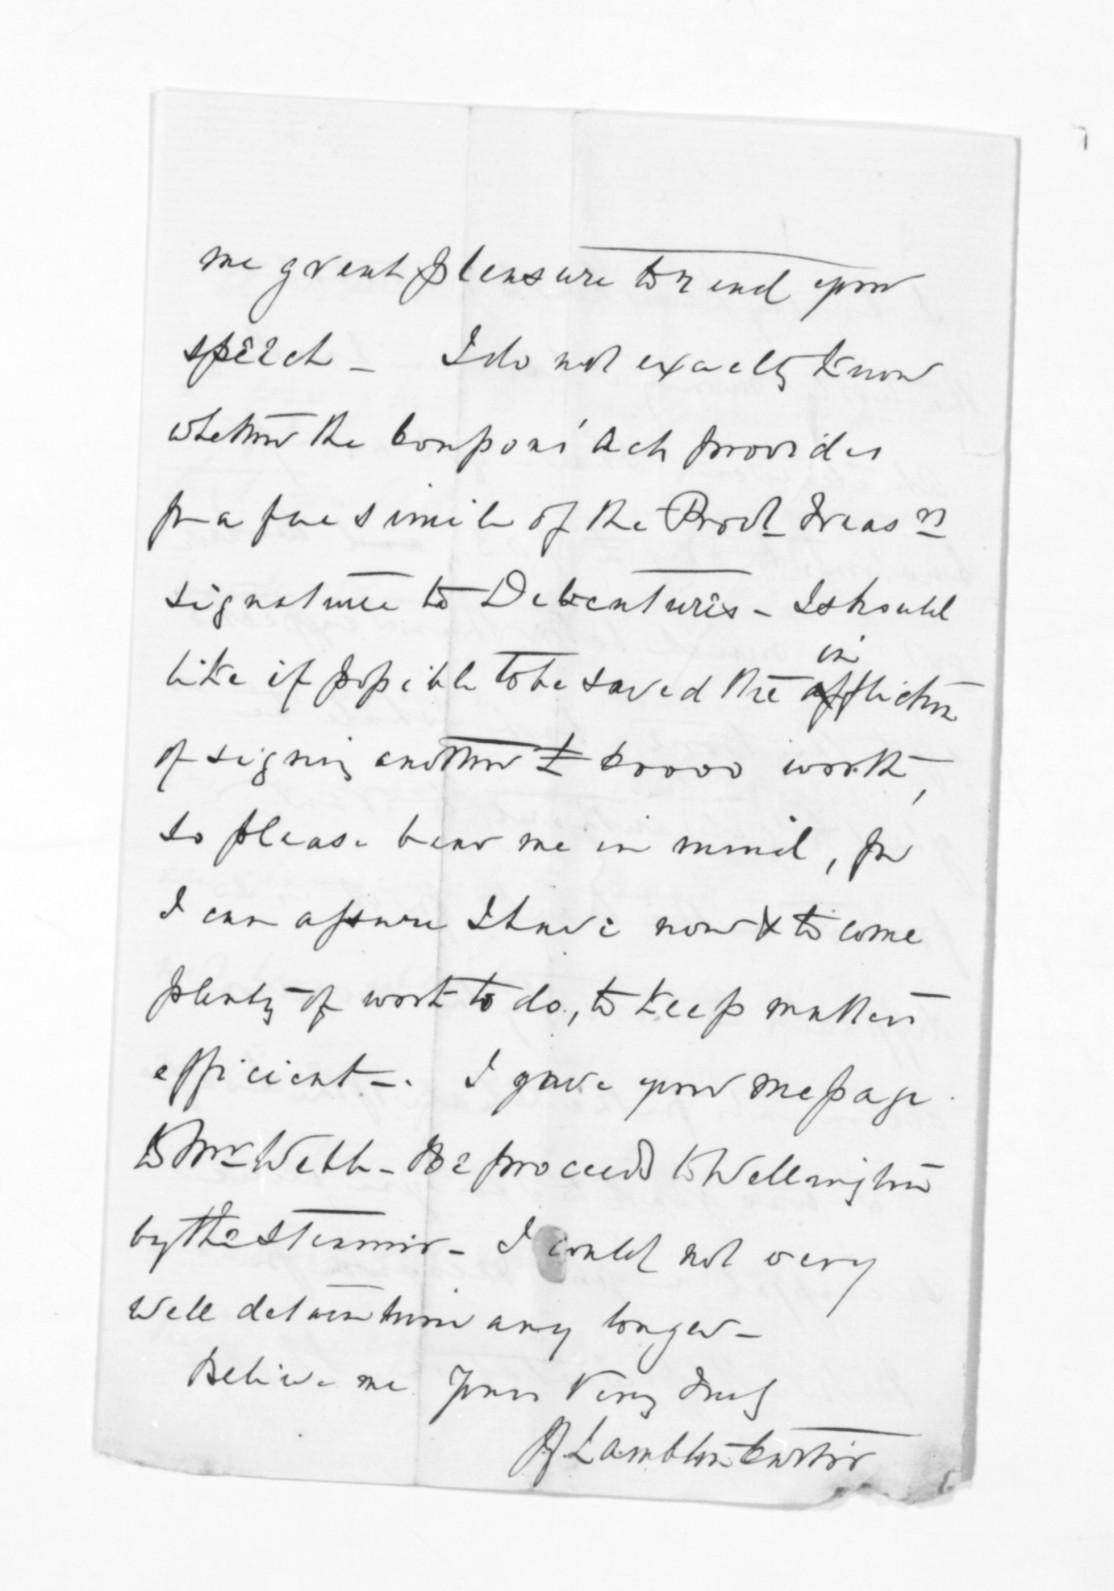 me great pleasure to read your
speech - I do not exactly know
whether the Coupons' Act provides
for a fac simile of the Provl. Treasrs
signature to Debentures - I should
like if possible to be saved the in affliction
of signing another £ 50000 worth,
so please bear me in mind, for
I can assure I have now & to come
plenty of work to do, to keep matters
efficient -. I gave your message
to Mr Webb - He proceeds to Wellington
by the Steamer - I could not very
well detain him any longer -
Believe me Yours Very Truly